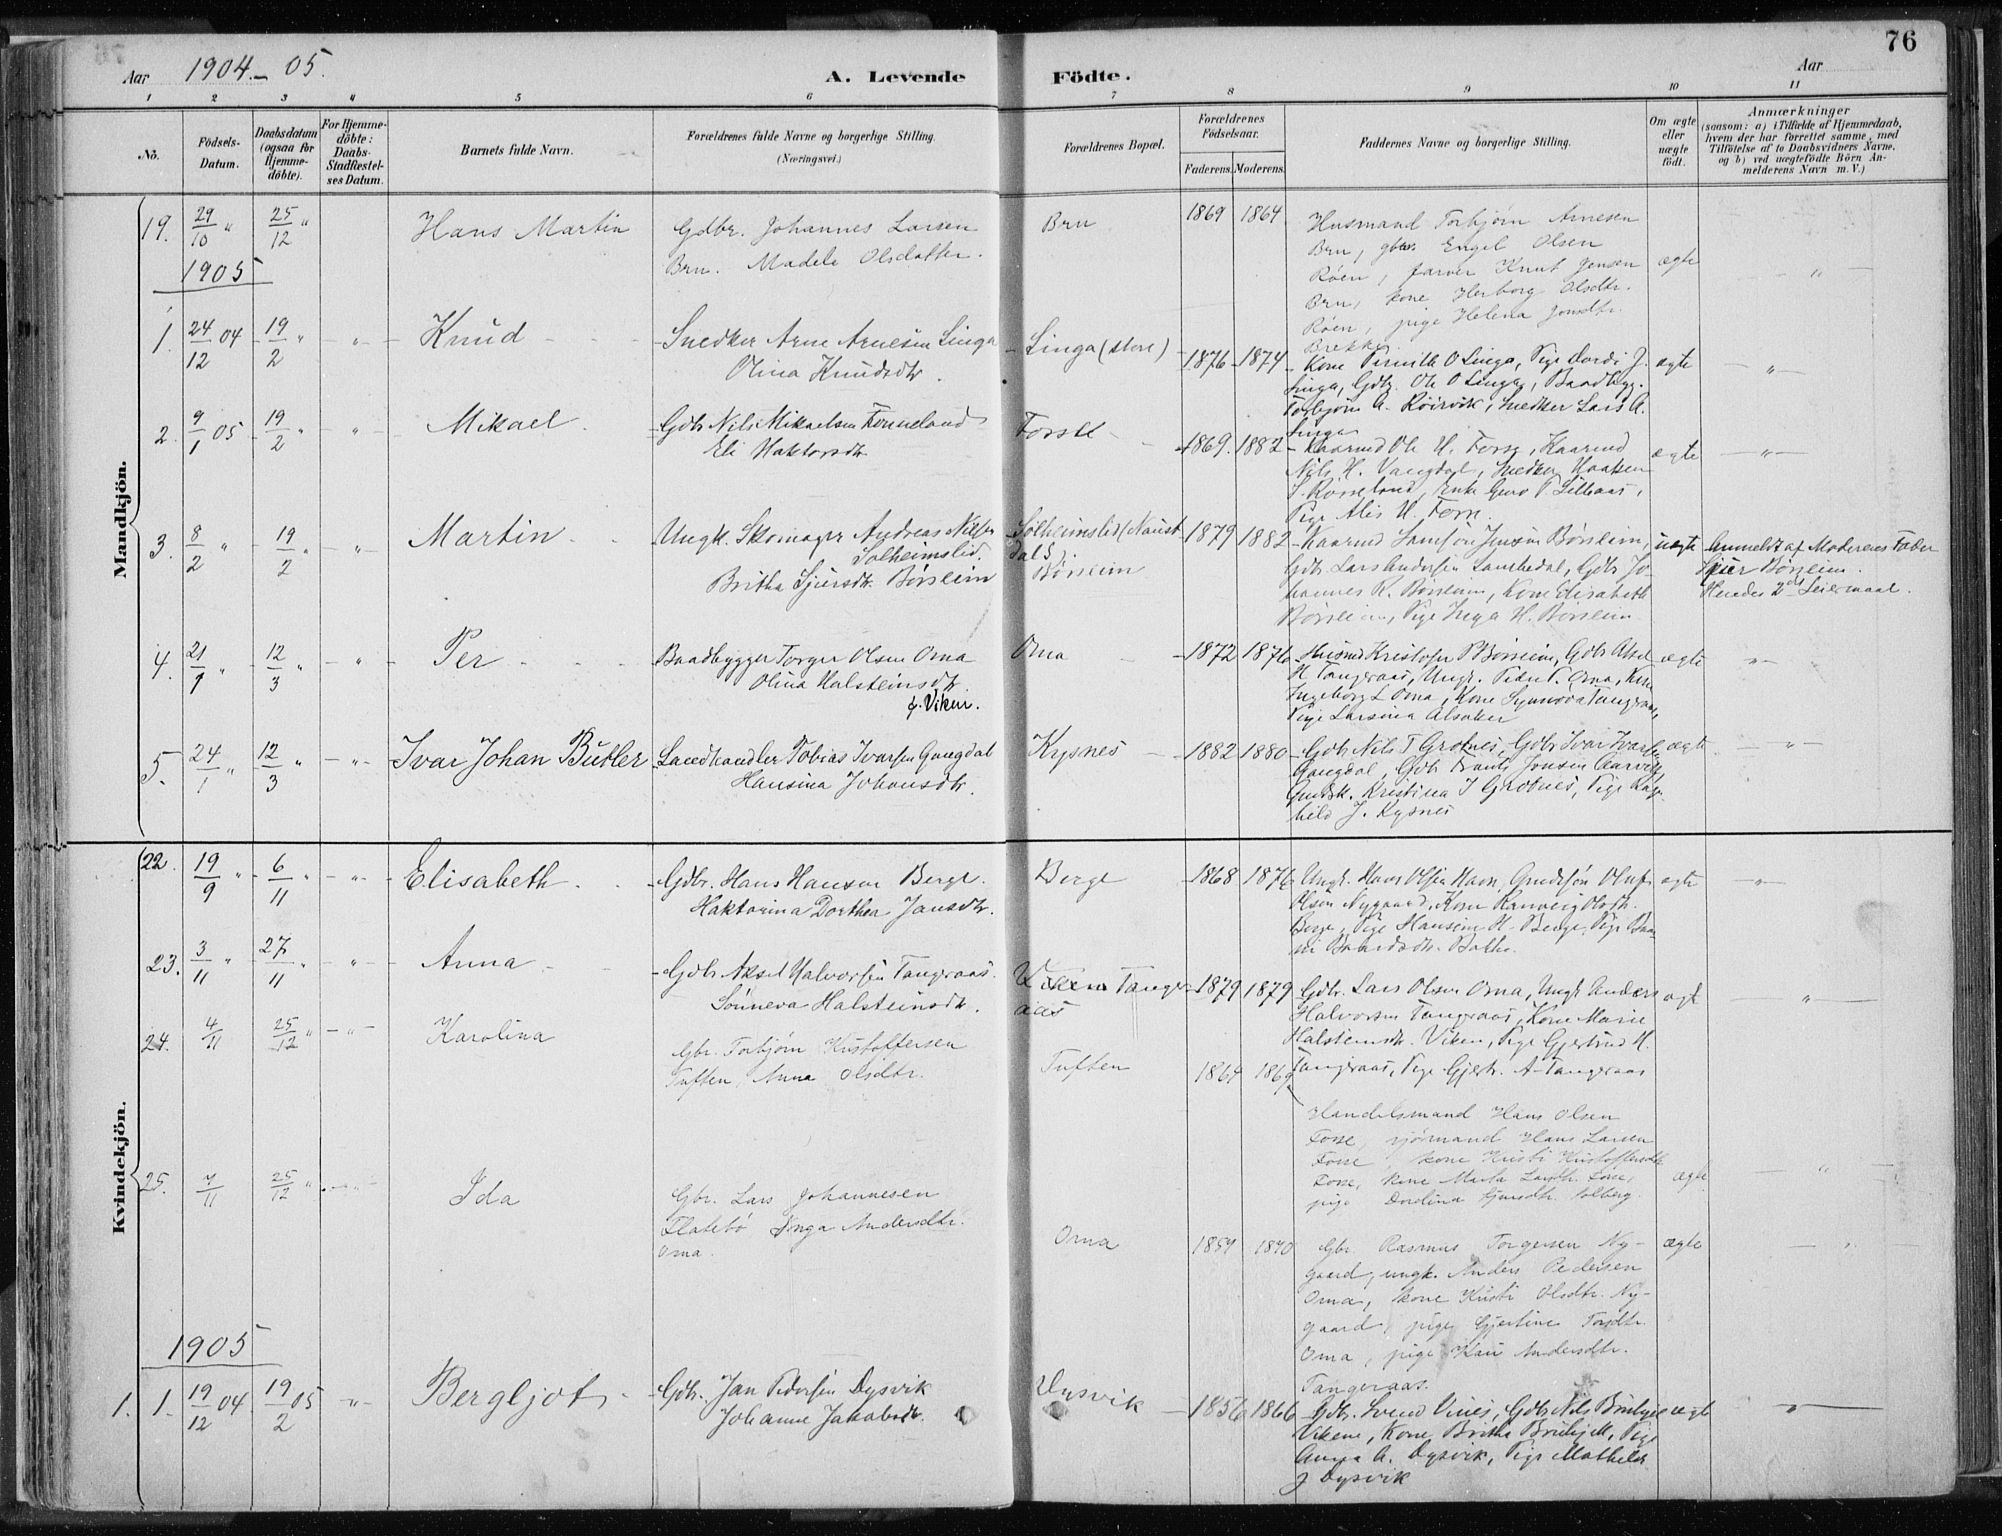 76
Aar 1904 – 05.
A. Levende Födte.
Aar
1 2 3 4 5 6 7 8 9 10 11
No.
Födsels-Datum.
Daabsdatum (ogsaa for Hjemme-döbte).
For Hjemme-döbte: Daabs-Stadfæstel-ses Datum.
Barnets fulde Navn.
Forældrenes fulde Navne og borgerlige Stilling. (Næringsvei.)
Forældrenes Bopæl.
Forældrenes Födselsaar.
Faderens. Moderens.
Faddernes Navne og borgerlige Stilling.
Om ægte eller uægte födt.
Anmærkninger
(saasom: a) i Tilfælde af Hjemmedaab, hvem der har forrettet samme, med Tilföielse af to Daabsvidners Navne, og b) ved uægtefödte Börn An-melderens Navn m. V.)
Mandkjön.
19. 29/10 " 25/12 " Hans Martin
Gdbr. Johannes Larsen
Bru. Madele Olsdatter.
Bru 1869 1864
Husmand Torbjørn Arnesen
Bru, gbr. Engel Olsen
Røen, farver Knut Jensen
Bru, kone Herborg Olsdtr.
Røen, pige Helena Jonsdtr.
Brekke.
ægte "
1905
1. 24/12 04 19/2 " " Knud
Snedker Arne Arnesen Linga
Olina Knudsdtr.
Linga (store) 1876 1874
Kone Pernille O Linga, Pige Dordi J.
Linga, Gdbr. Ole O Linga, Baadbygg.
Torbjørn A. Røirvik, Snedker Lars A.
Linga
ægte "
2. 9/1 05 19/2 " " Mikael
Gdbr Nils Mikaelsen Tonneland
Eli Haktorsdtr
1869. 1882
Kaarmd Ole H. , Kaarmd
Nils H. Vangdal, Snedker Haaken
S. Rosseland, Enke Guro T Lillaas,
Pige Alis H.
ægte "
3. 8/2 " 19/2 " " Martin
Ungk. Skomager Andreas Nilsen
Solheimslid.
Britha Sjursdtr. Børsheim
Solheimslid (Naust
dal)
Børsheim
1879 1882
Kaarmd Samson Jensen Børsheim,
Gdbr Lars Andersen Sandsdal, Gdbr Jo-
hannes R. Børsheim, Kone Elisabeth
Børsheim, Pige Inga H. Børsheim
uægte
Anmeldt af Moderens Fader
Sjur Børsheim.
Hendes 2det Leiermaal.
4. 21/1 " 12/3 " " Per
Baadbygger Torger Olsen Oma
Olina Halsteinsdtr.
f. Viken.
Oma 1872 1876
Husmd Kristofer P Børsheim, Gdbr Aksel
H Tangeraas, Ungk. Peder T. Oma, Kone
Ingeborg L Oma, Kone Synnøva Tangeraas,
Pige Larsina Alsaker
ægte "
5. 24/1 " 12/3 " " Ivar Johan Butler
Landhandler Tobias Ivarsen Gangdal
Hansina Johansdtr.
Kysnes 1882 1880
Gdbr Nils T Grotnes, Gdbr Ivar Ivarsen
Gangdal, Gdbr Jonsen Aarvik
Gmdsk. Kristina I Grotnes, Pige Rag
hild J. Kysnes
ægte "
Kvindekjön.
22. 19/9 " 6/11 " " Elisabeth
Gdbr. Hans Hansen Berge.
Haktorina Dorthea Jansdtr.
Berge 1868 1876
Ungk. Hans Olsen Havn, Gmdssøn Oluf
Olsen Nygaard, Kone Ranveig Olsdtr.
Berge, Pige Hansine H. Berge, Pige
Baardsdtr.
ægte "
23. 3/11 " 27/11 " " Anna
Gdbr Aksel Halvorsen Tangeraas.
Sønneva Halsteinsdtr.
Tanger
aas
1879 1879
Gdbr. Lars Olsen Oma, Ungk Anders
Halvorsen Tangeraas, Kone Marie
Halsteinsdtr. Viken, Pige Gjertrud H.
Tangeraas, Pige Gjertr. A. Tangeraas
ægte "
24. 4/11 25/12 " " Karolina
Gbr. Torbjørn Kristoffersen
Tuften, Anna Olsdtr.
Tuften 1864 1869
Handelsmand Hans Olsen
Fosse, sjømand Hans Larsen
Fosse, kone Kristi Kristoffersdtr
Fosse, kone Marta Larsdtr. Fosse,
pige Dordina Sjursdtr. Solberg.
ægte "
25. 7/11 25/12 " " Ida
Gbr. Lars Johannesen
Flatebø Inga Andersdtr.
Oma.
Oma 1859 1870
Gbr. Rasmus Torgersen Ny-
gaard, ungk. Anders Pedersen
Oma, kone Kristi Olsdtr. Ny-
gaard, pige Gjertine Torsdtr.
Oma, pige Kari Andersdtr.
Tangeraas.
ægte "
1905
1. 1. 19/12 04 19/2 05 " Bergljot
Gdbr. Jan Pedersen Dysvik
Johanne Jakobsdtr.
Dysvik 1856 1866
Gdbr. Svend Vines, Gdbr Nils
Vikene, Kone Britha , Pige
Anna A. Dysvik, Pige Mathilde
J Dysvik
ægte "